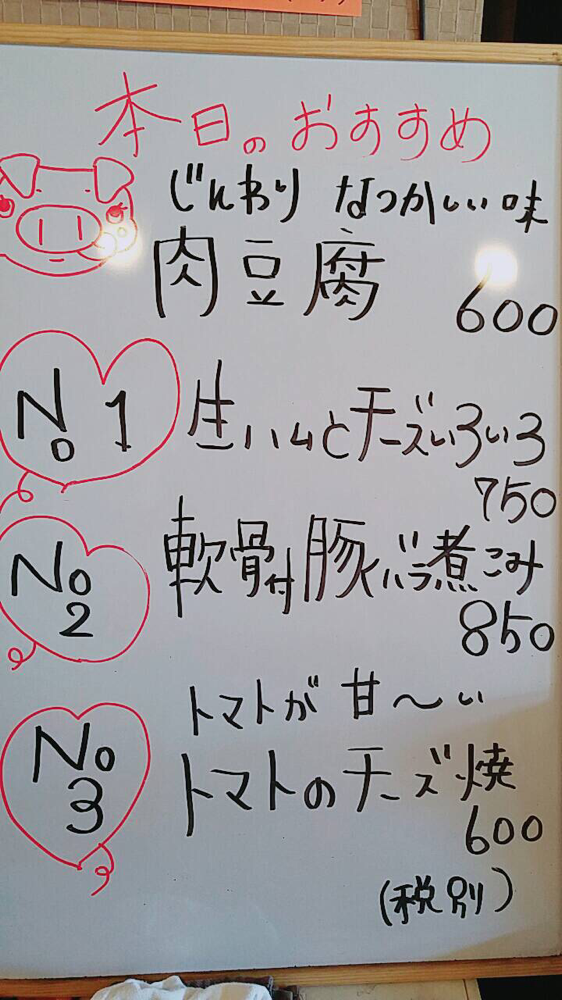 本日のおすすめ
じんわり なつかしい味
肉豆腐
600
No 1
生ハムとチーズいろいろ
750
No 2
軟骨付豚バラ煮こみ
850
No 3
トマトが甘〜い
トマトのチーズ焼
600
(税別)